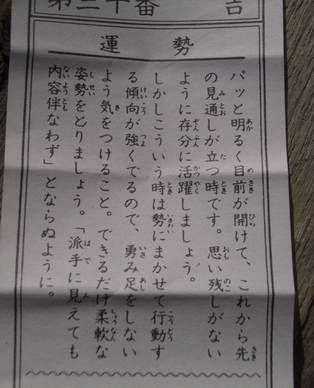 第三十番 吉
運勢
パッと明るく目前が開けて、これから先
の見通しが立つ時です。思い残しがない
ように存分に活躍しましょう。
しかしこういう時は勢にまかせて行動す
る傾向が強くでるので、勇み足をしない
よう気をつけること。できるだけ柔軟な
姿勢をとりましょう。「派手に見えても
内容伴なわず」とならぬように。